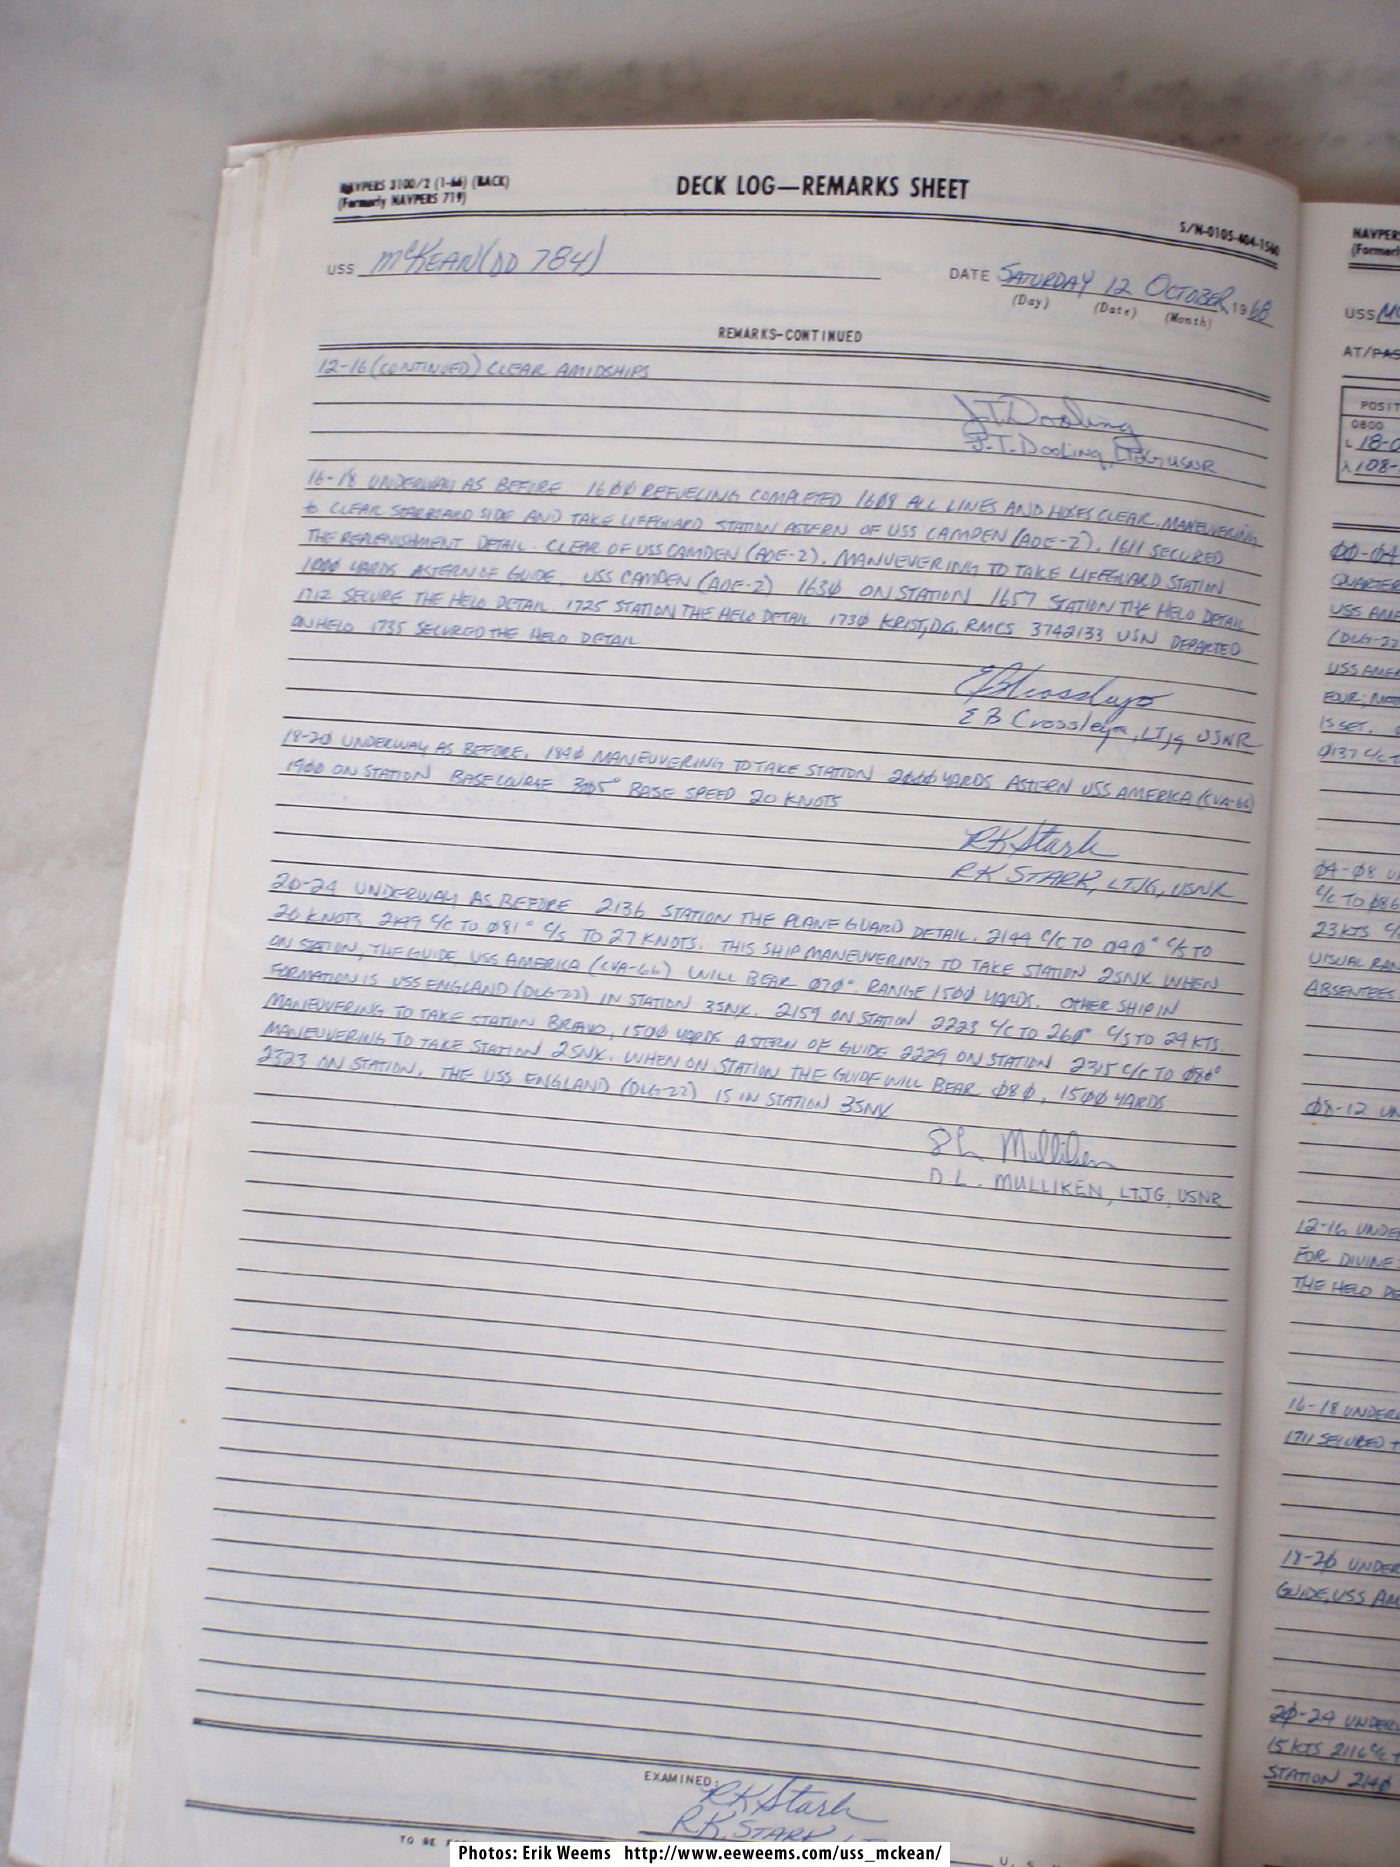 NAVPERS 3100/2 (1-66) (BACK)
(Formerly NAVPERS 719)
DECK LOG—REMARKS SHEET
S/N-0105-404-1560
USS McKEAN (DD 784)
DATE SATURDAY 12 OCTOBER, 1968
(Day) (Date) (Month)
REMARKS-CONTINUED
12-16 (CONTINUED) CLEAR AMIDSHIPS
J.T. Dooling
J.T. Dooling, LTJG, USNR
16-18 UNDERWAY AS BEFORE 1600 REFUELING COMPLETED 1608 ALL LINES AND HOSES CLEAR. MANEUVERING
to CLEAR STARBOARD SIDE AND TAKE LIFEGUARD STATION ASTERN OF USS CAMDEN (AOE-2). 1611 SECURED
THE REPLENISHMENT DETAIL. CLEAR OF USS CAMDEN (AOE-2). MANUEVERING TO TAKE LIFEGUARD STATION
1000 YARDS ASTERN OF GUIDE, USS CAMDEN (AOE-2) 1630 ON STATION 1657 STATION THE HELO DETAIL
1712 SECURE THE HELO DETAIL. 1725 STATION THE HELO DETAIL 1730 KRIST, DG, RMCS 3742133 USN DEPARTED
ON HELO 1735 SECURED THE HELO DETAIL
E B Crossley, LTJG USNR
18-20 UNDERWAY AS BEFORE. 1840 MANEUVERING TO TAKE STATION 2000 YARDS ASTERN USS AMERICA (CVA-66)
1900 ON STATION BASE COURSE 305° BASE SPEED 20 KNOTS
RK Stark
RK STARK, LTJG, USNR
20-24 UNDERWAY AS BEFORE 2136 STATION THE PLANE GUARD DETAIL. 2144 C/C TO 040° C/S TO
20 KNOTS 2149 C/C TO 081° C/S TO 27 KNOTS. THIS SHIP MANEUVERING TO TAKE STATION 2SNX. WHEN
ON STATION, THE GUIDE, USS AMERICA (CVA-66) WILL BEAR 070°. RANGE 1500 YARDS. OTHER SHIP IN
FORMATION IS USS ENGLAND (DLG-22) IN STATION 3SNX. 2159 ON STATION 2223 C/C TO 260° C/S TO 24 KTS.
MANEUVERING TO TAKE STATION BRAVO, 1500 YARDS ASTERN OF GUIDE 2229 ON STATION 2315 C/C TO 080°
MANEUVERING TO TAKE STATION 2SNX. WHEN ON STATION THE GUIDE WILL BEAR 080, 1500 YARDS
2323 ON STATION. THE USS ENGLAND (DLG-22) IS IN STATION 3SNX
D L Mulliken
D. L. MULLIKEN, LTJG, USNR
EXAMINED:
RK Stark
RK. STARK
TO BE
U. S.
NAVPERS
(Formerl
USS Mc
AT/PAS
POSIT
0800
L 18-0
λ 108-
00-04
QUARTER
USS AME
(DLG-22
USS AMER
FOUR;
IS SET.
0137 C/C T
04-08 U
C/C TO 086
23 KTS C/
VISUAL RAN
ABSENTEES
08-12 UN
12-16 UNDE
FOR DIVINE
THE HELO DE
16-18 UNDER
1711 SECURED T
18-20 UNDER
GUIDE, USS AM
20-24 UNDER
15 KTS 2116 C/C T
STATION 2140
Photos: Erik Weems http://www.eeweems.com/uss_mckean/